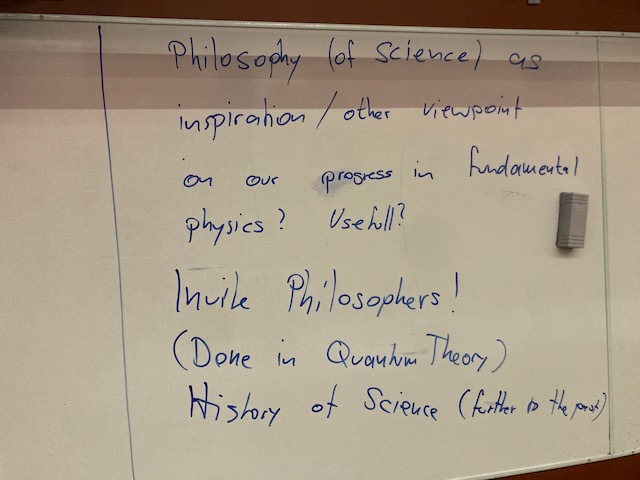 Philosophy (of Science) as
inspiration / other viewpoint
on our progress in fundamental
physics? Usefull?
Invite Philosophers!
(Done in Quantum Theory)
History of Science (further to the past)